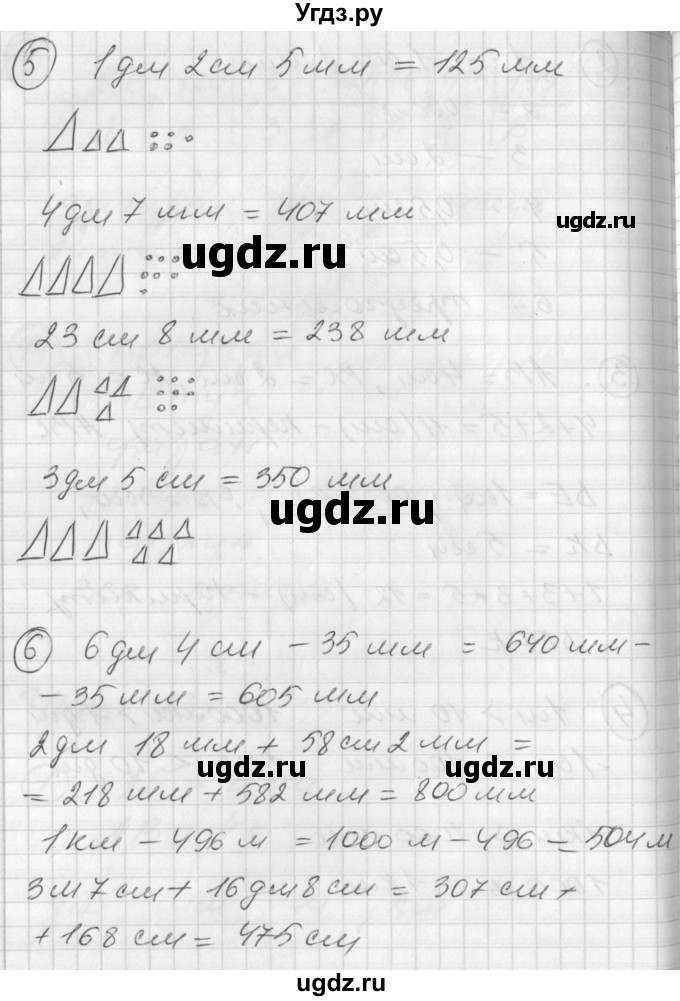 Угдз.ру
5 1 дм 2 см 5 мм = 125 мм
ugdz.ru
4 дм 7 мм = 407 мм
ugdz.ru
ugdz.ru
23 см 8 мм = 238 мм
3 дм 5 см = 350 мм
ugdz.ru
6 6 дм 4 см - 35 мм = 640 мм -
- 35 мм = 605 мм
2 дм 18 мм + 58 см 2 мм =
ugdz.ru
ugdz.ru
= 218 мм + 582 мм = 800 мм
1 км - 496 м = 1000 м - 496 = 504 м
3 м 7 см + 16 дм 8 см = 307 см +
+ 168 см = 475 см
ugdz.ru